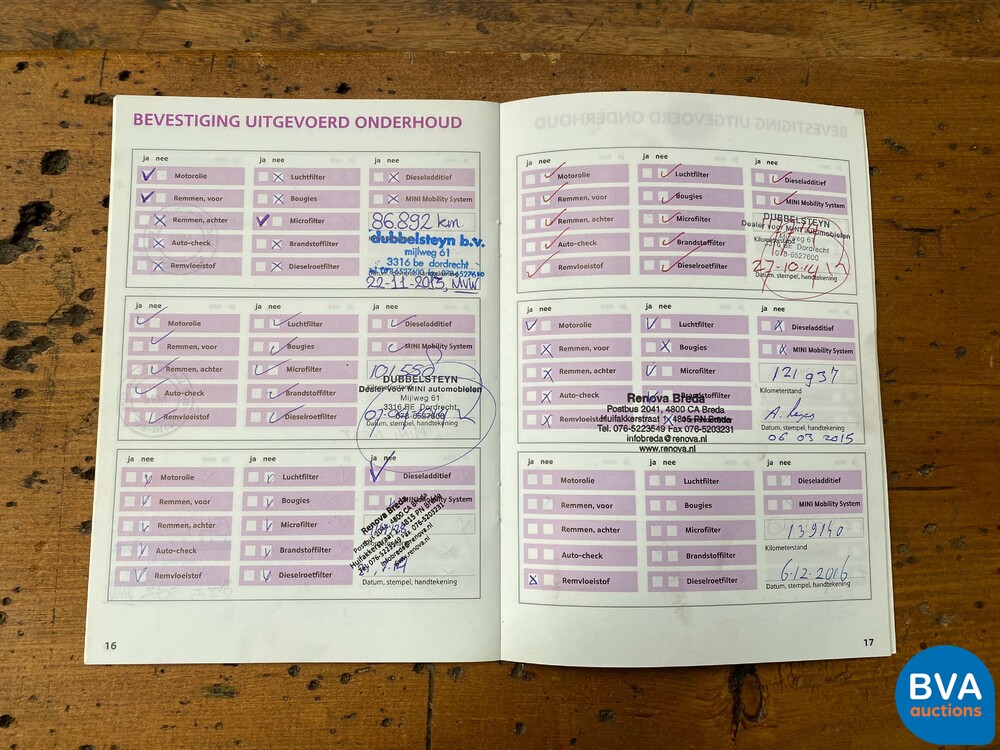 BEVESTIGING UITGEVOERD ONDERHOUD
ja nee ja nee ja nee
Motorolie Luchtfilter Dieseladditief
Remmen, voor Bougies MINI Mobility System
Remmen, achter Microfilter 86.892 km.
Auto-check Brandstoffilter
Remvloeistof Dieselroetfilter
dubbelsteyn b.v.
mijlweg 61
3316 be dordrecht
22-11-2013, MVW
ja nee ja nee ja nee
Motorolie Luchtfilter Dieseladditief
Remmen, voor Bougies MINI Mobility System
Remmen, achter Microfilter 101.550
Auto-check Brandstoffilter
Remvloeistof Dieselroetfilter
DUBBELSTEYN
Dealer voor MINI automobielen
Mijlweg 61
3316 BE Dordrecht
078-6527600
Datum, stempel, handtekening
ja nee ja nee ja nee
Motorolie Luchtfilter Dieseladditief
Remmen, voor Bougies MINI Mobility System
Remmen, achter Microfilter
Auto-check Brandstoffilter
Remvloeistof Dieselroetfilter
Renova Breda
Postbus 2041, 4800 CA Breda
Huifakkerstraat 1 4815 PN Breda
Tel. 076-5223549 Fax 076-5203231
infobreda@renova.nl
www.renova.nl
Datum, stempel, handtekening
16
ja nee ja nee ja nee
Motorolie Luchtfilter Dieseladditief
Remmen, voor Bougies MINI Mobility System
Remmen, achter Microfilter
Auto-check Brandstoffilter
Remvloeistof Dieselroetfilter
DUBBELSTEYN
Dealer voor MINI automobielen
Mijlweg 61
3316 BE Dordrecht
078-6527600
27-10-14
Datum, stempel, handtekening
ja nee ja nee ja nee
Motorolie Luchtfilter Dieseladditief
Remmen, voor Bougies MINI Mobility System
Remmen, achter Microfilter 121937
Auto-check Brandstoffilter Kilometerstand
Remvloeistof Dieselroetfilter
Renova Breda
Postbus 2041, 4800 CA Breda
Huifakkerstraat 1 4815 PN Breda
Tel. 076-5223549 Fax 076-5203231
infobreda@renova.nl
www.renova.nl
Datum, stempel, handtekening
06 03 2015
ja nee ja nee ja nee
Motorolie Luchtfilter Dieseladditief
Remmen, voor Bougies MINI Mobility System
Remmen, achter Microfilter 139140
Auto-check Brandstoffilter Kilometerstand
Remvloeistof Dieselroetfilter 6-12-2016
Datum, stempel, handtekening
17
BVA
auctions